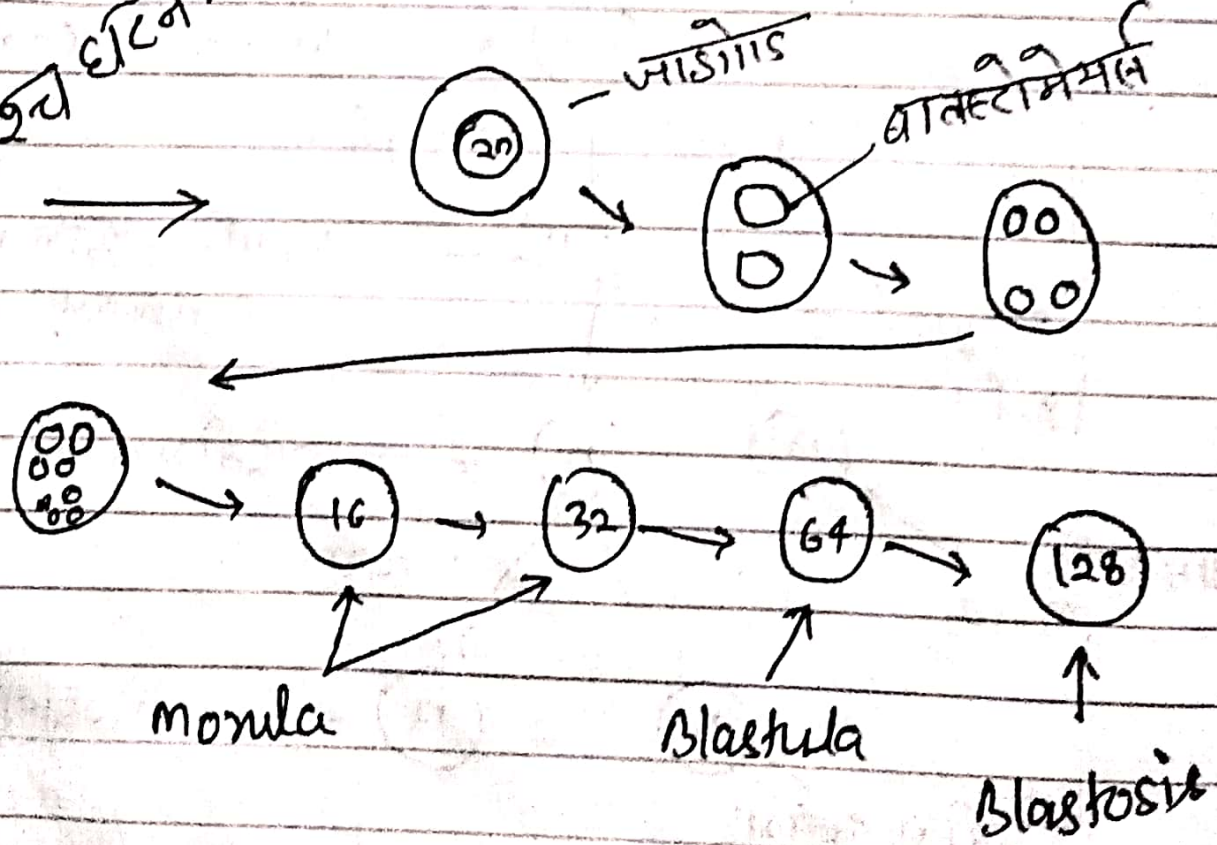 जाइगोड
2n
बालस्टोमेयर्स
16
32
64
128
Morula
Blastula
Blastosis